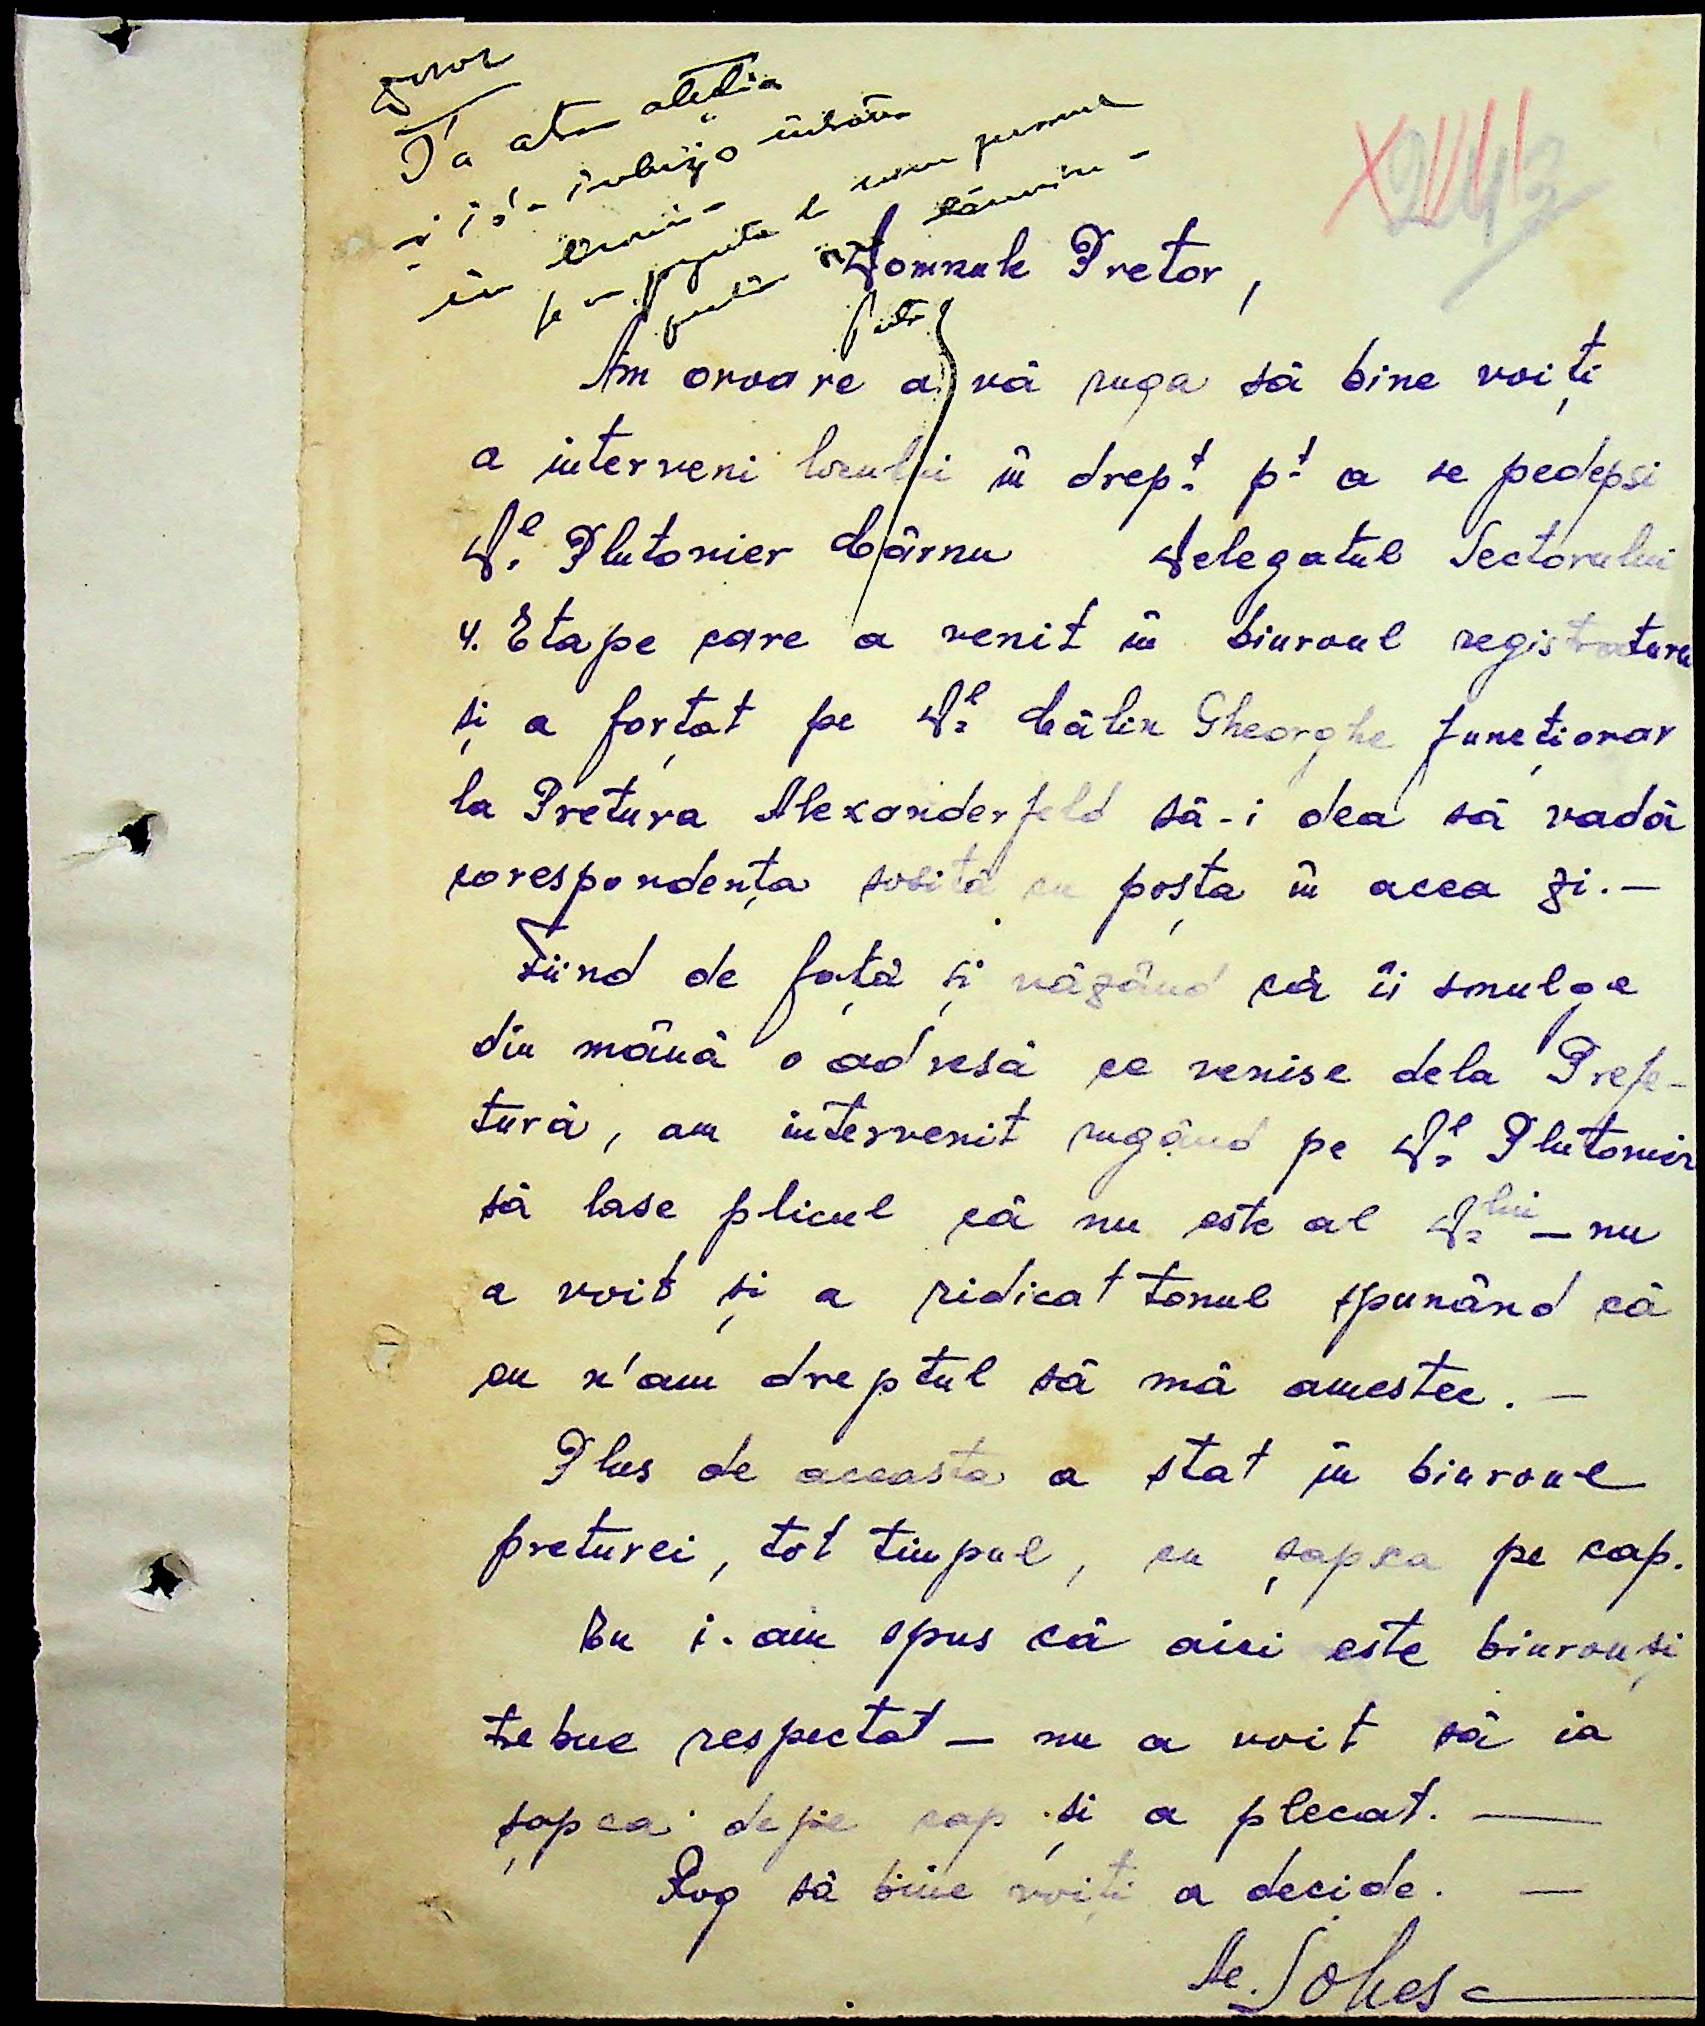 243
Domnule Pretor,
Am onoare a vă ruga să bine voiți
a interveni locului în drep.t p.t a se pedepsi
D.l Plutonier Cârnu Delegatul Sectorului
4. Etape care a venit în biuroul registratura
și a forțat pe D.l Călin Gheorghe funcționar
la Pretura Alexanderfeld să-i dea să vadă
corespondența sosită cu poșta în acea zi.—
Fiind de față și văzând că îi smulge
din mână o adresă ce venise dela Prefe-
tură, am intervenit rugând pe D.l Plutonier
să lase plicul că nu este al D.lui — nu
a voit și a ridicat tonul spunând că
eu n'am dreptul să mă amestec. —
Plus de aceasta a stat în biuroul
preturei, tot timpul, cu șapca pe cap.
Eu i-am spus că aici este biurou și
trebue respectat — nu a voit să ia
șapca depe cap și a plecat. —
Rog să bine voiți a decide. —